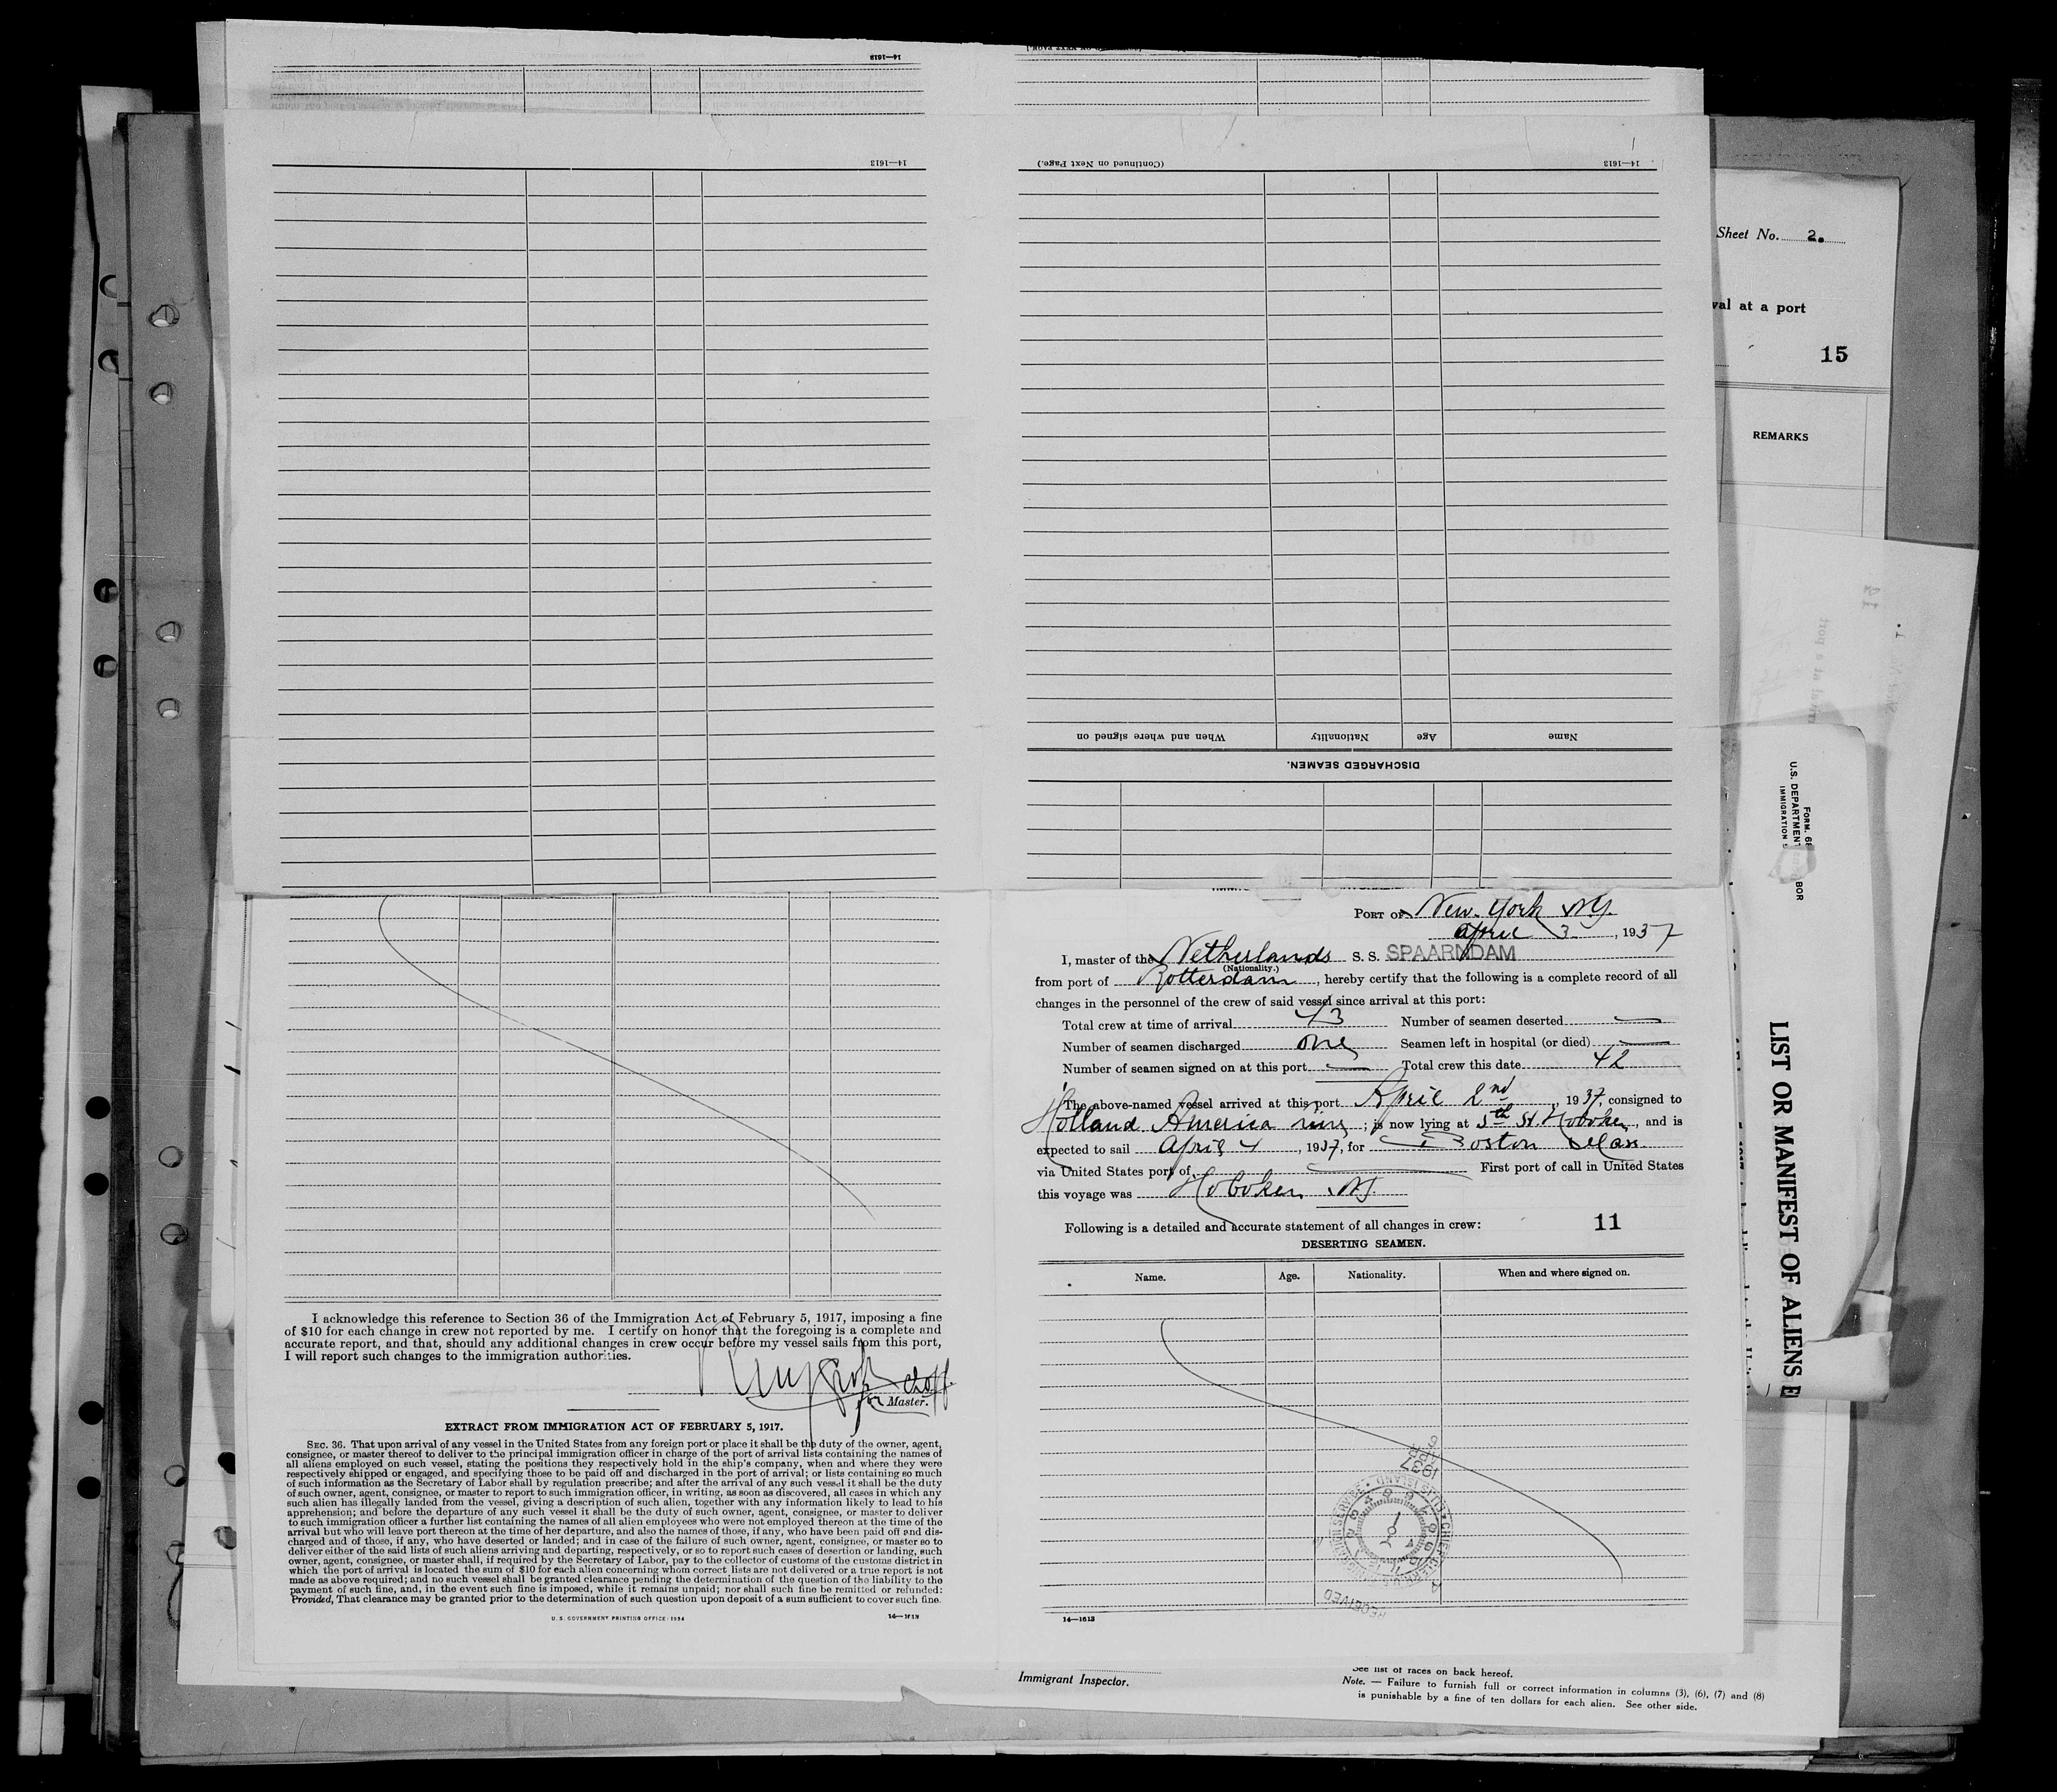 14—1613
14—1613
(Continued on Next Page.)
14—1613
Sheet No. 2.
val at a port
15
REMARKS
When and where signed on
Nationality
Age
Name
DISCHARGED SEAMEN.
FORM 68
U.S. DEPARTMENT
IMMIGRATION
BOR
LIST OR MANIFEST OF ALIENS E
14
PORT OF New York NY.
April 3, 1937
I, master of the Netherlands S. S. SPAARNDAM
(Nationality.)
from port of Rotterdam, hereby certify that the following is a complete record of all
changes in the personnel of the crew of said vessel since arrival at this port:
Total crew at time of arrival 43 Number of seamen deserted —
Number of seamen discharged one Seamen left in hospital (or died) —
Number of seamen signed on at this port — Total crew this date 42
The above-named vessel arrived at this port April 2nd, 1937, consigned to
Holland America Line; is now lying at 5th St. Hoboken, and is
expected to sail April 4, 1937, for Boston Mass.
via United States port of — First port of call in United States
this voyage was Hoboken NJ.
Following is a detailed and accurate statement of all changes in crew: 11
DESERTING SEAMEN.
Name. Age. Nationality. When and where signed on.
APR 1937
RECEIVED
14—1613
I acknowledge this reference to Section 36 of the Immigration Act of February 5, 1917, imposing a fine
of $10 for each change in crew not reported by me. I certify on honor that the foregoing is a complete and
accurate report, and that, should any additional changes in crew occur before my vessel sails from this port,
I will report such changes to the immigration authorities.
for Master.
EXTRACT FROM IMMIGRATION ACT OF FEBRUARY 5, 1917.
SEC. 36. That upon arrival of any vessel in the United States from any foreign port or place it shall be the duty of the owner, agent,
consignee, or master thereof to deliver to the principal immigration officer in charge of the port of arrival lists containing the names of
all aliens employed on such vessel, stating the positions they respectively hold in the ship's company, when and where they were
respectively shipped or engaged, and specifying those to be paid off and discharged in the port of arrival; or lists containing so much
of such information as the Secretary of Labor shall by regulation prescribe; and after the arrival of any such vessel it shall be the duty
of such owner, agent, consignee, or master to report to such immigration officer, in writing, as soon as discovered, all cases in which any
such alien has illegally landed from the vessel, giving a description of such alien, together with any information likely to lead to his
apprehension; and before the departure of any such vessel it shall be the duty of such owner, agent, consignee, or master to deliver
to such immigration officer a further list containing the names of all alien employees who were not employed thereon at the time of the
arrival but who will leave port thereon at the time of her departure, and also the names of those, if any, who have been paid off and dis-
charged and of those, if any, who have deserted or landed; and in case of the failure of such owner, agent, consignee, or master so to
deliver either of the said lists of such aliens arriving and departing, respectively, or so to report such cases of desertion or landing, such
owner, agent, consignee, or master shall, if required by the Secretary of Labor, pay to the collector of customs of the customs district in
which the port of arrival is located the sum of $10 for each alien concerning whom correct lists are not delivered or a true report is not
made as above required; and no such vessel shall be granted clearance pending the determination of the question of the liability to the
payment of such fine, and, in the event such fine is imposed, while it remains unpaid; nor shall such fine be remitted or refunded:
Provided, That clearance may be granted prior to the determination of such question upon deposit of a sum sufficient to cover such fine.
U. S. GOVERNMENT PRINTING OFFICE: 1934
14—1613
Immigrant Inspector.
See list of races on back hereof.
Note. — Failure to furnish full or correct information in columns (3), (6), (7) and (8)
is punishable by a fine of ten dollars for each alien. See other side.